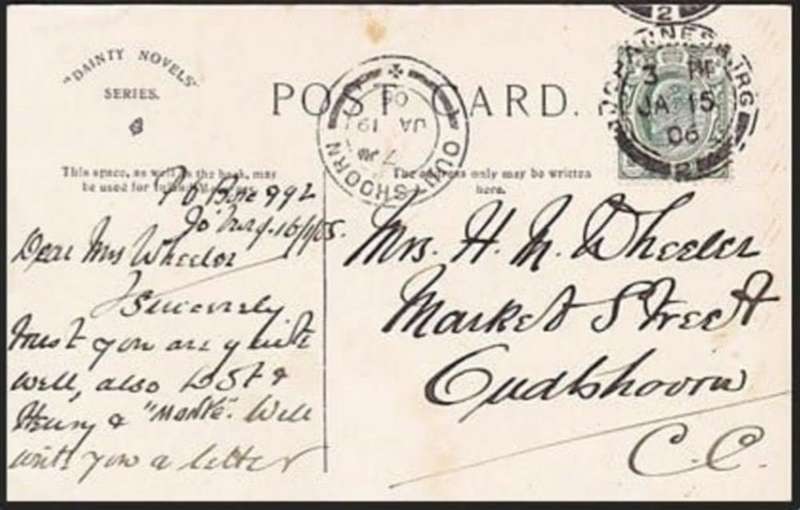 "DAINTY NOVELS"
SERIES.
POST CARD.
This space, as well as the back, may
be used for
The address only may be written
here.
OUDTSHOORN
JA 19
06
JOHANNESBURG
3 PM
JA 15
06
2
PO Box 992
Jo'burg. 16/1/05.
Dear Mrs Wheeler
I sincerely
trust you are quite
well, also &
Henry & "Monte". Will
write you a letter
Mrs. H. M. Wheeler
Market Street
Oudtshoorn
C.C.